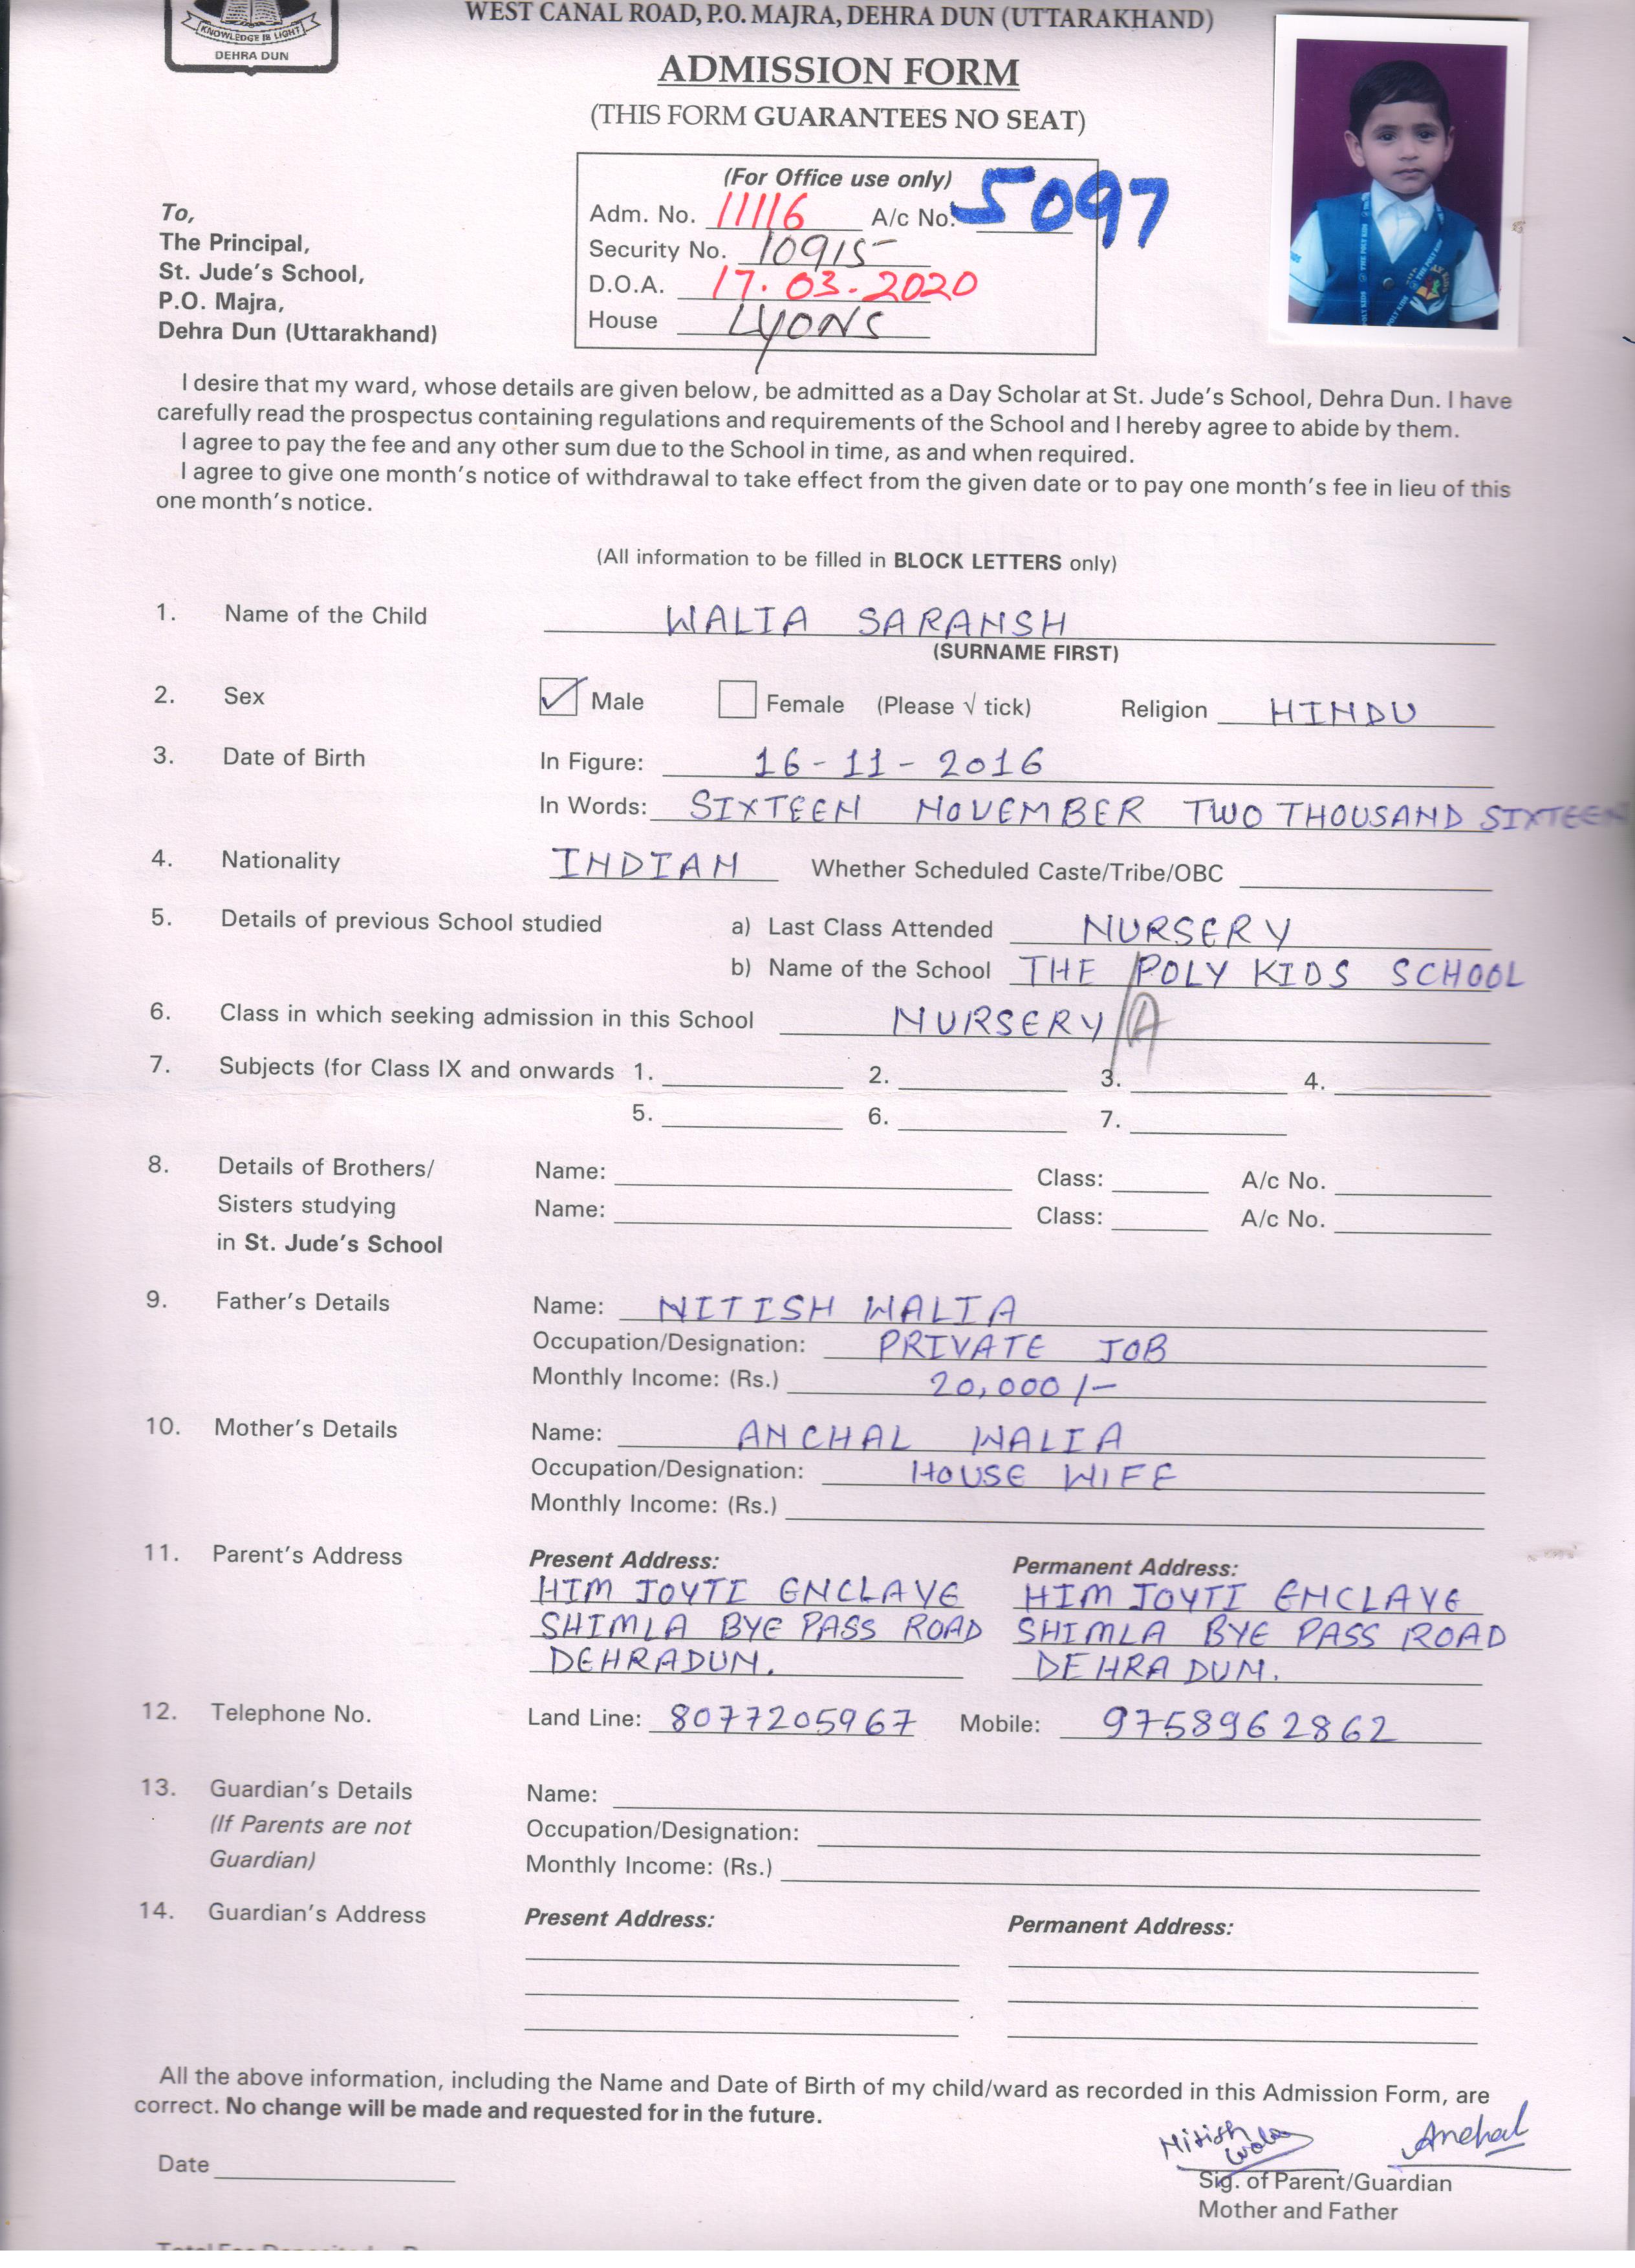 KNOWLEDGE IS LIGHT
DEHRA DUN
WEST CANAL ROAD, P.O. MAJRA, DEHRA DUN (UTTARAKHAND)
ADMISSION FORM
(THIS FORM GUARANTEES NO SEAT)
(For Office use only)
Adm. No. 11116 A/c No. 5097
Security No. 10915
D.O.A. 17.03.2020
House LYONS
To,
The Principal,
St. Jude's School,
P.O. Majra,
Dehra Dun (Uttarakhand)
I desire that my ward, whose details are given below, be admitted as a Day Scholar at St. Jude's School, Dehra Dun. I have
carefully read the prospectus containing regulations and requirements of the School and I hereby agree to abide by them.
I agree to pay the fee and any other sum due to the School in time, as and when required.
I agree to give one month's notice of withdrawal to take effect from the given date or to pay one month's fee in lieu of this
one month's notice.
(All information to be filled in BLOCK LETTERS only)
1. Name of the Child WALIA SARANSH
(SURNAME FIRST)
2. Sex Male Female (Please √ tick) Religion HINDU
3. Date of Birth In Figure: 16-11-2016
In Words: SIXTEEN NOVEMBER TWO THOUSAND SIXTEEN
4. Nationality INDIAN Whether Scheduled Caste/Tribe/OBC
5. Details of previous School studied a) Last Class Attended NURSERY
b) Name of the School THE POLY KIDS SCHOOL
6. Class in which seeking admission in this School NURSERY/A
7. Subjects (for Class IX and onwards 1. 2. 3. 4.
5. 6. 7.
8. Details of Brothers/ Name: Class: A/c No.
Sisters studying Name: Class: A/c No.
in St. Jude's School
9. Father's Details Name: NITISH WALIA
Occupation/Designation: PRIVATE JOB
Monthly Income: (Rs.) 20,000/-
10. Mother's Details Name: ANCHAL WALIA
Occupation/Designation: HOUSE WIFE
Monthly Income: (Rs.)
11. Parent's Address Present Address: Permanent Address:
HIM JOYTI ENCLAVE HIM JOYTI ENCLAVE
SHIMLA BYE PASS ROAD SHIMLA BYE PASS ROAD
DEHRADUN. DEHRA DUN.
12. Telephone No. Land Line: 8077205967 Mobile: 9758962862
13. Guardian's Details Name:
(If Parents are not Occupation/Designation:
Guardian) Monthly Income: (Rs.)
14. Guardian's Address Present Address: Permanent Address:
All the above information, including the Name and Date of Birth of my child/ward as recorded in this Admission Form, are
correct. No change will be made and requested for in the future.
Nitish Walia Anchal
Date
Sig. of Parent/Guardian
Mother and Father